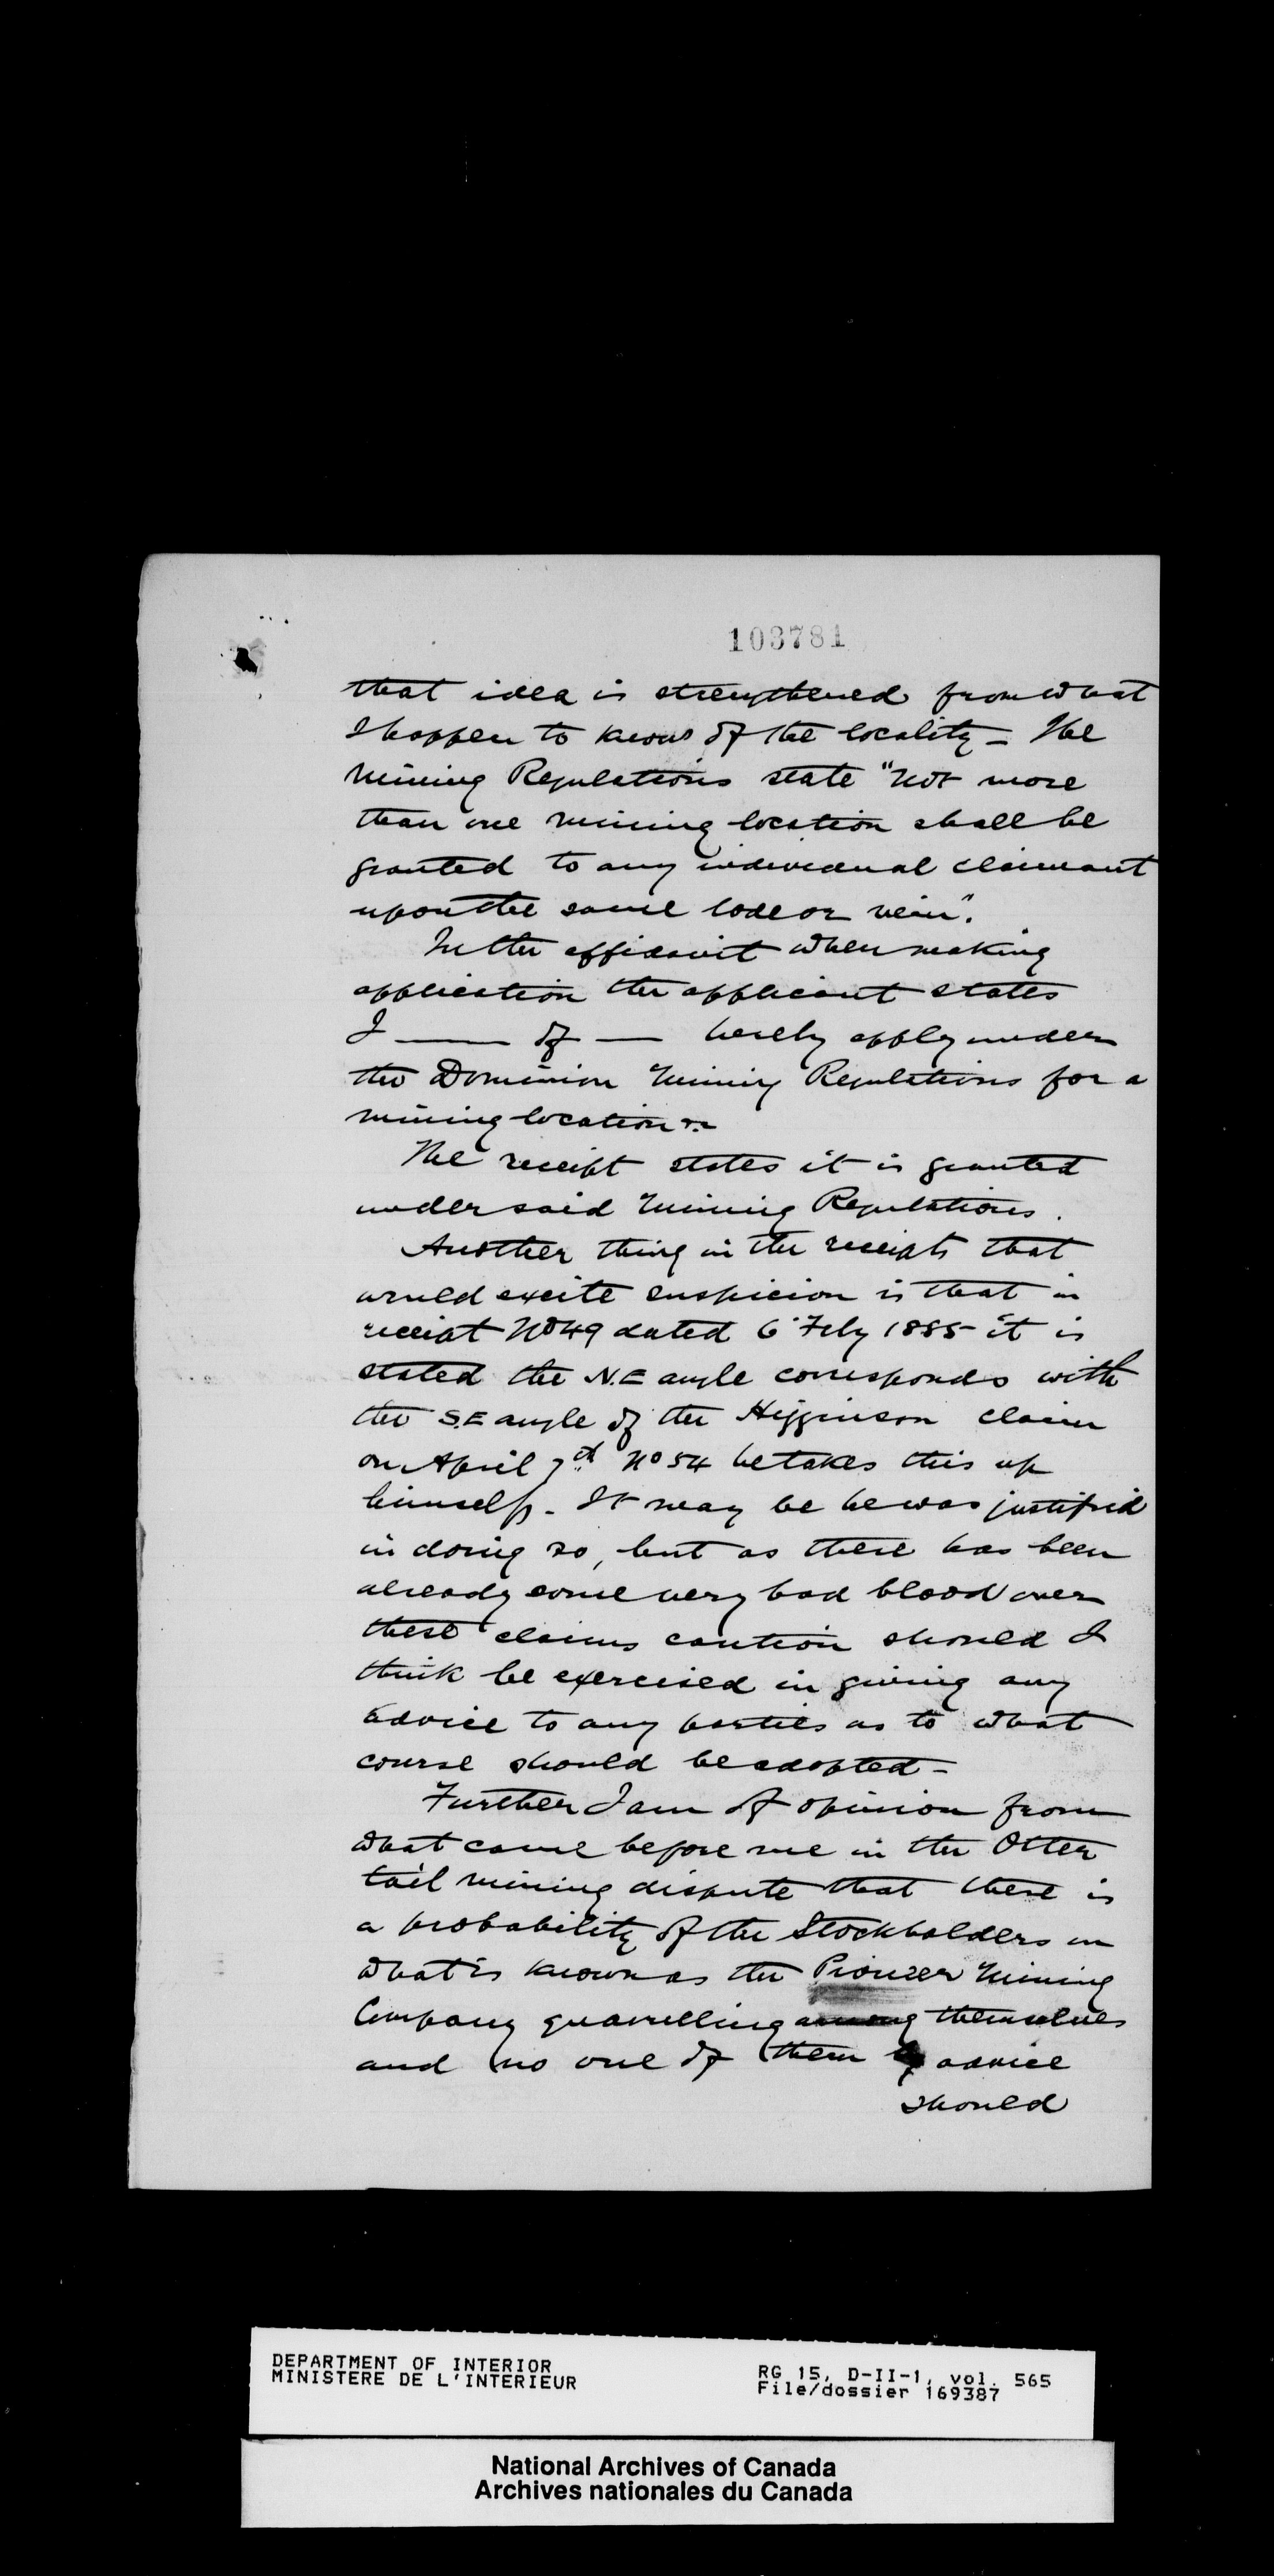 103781
that idea is strengthened from what
I happen to know of the locality - The
Mining Regulations state "Not more
than one mining location shall be
granted to any individual claimant
upon the same lode or vein".
In the affidavit when making
application the applicant states
I —— of —— hereby apply under
the Dominion Mining Regulations for a
mining location
The receipt states it is granted
under said Mining Regulations.
Another thing in the receipts that
would excite suspicion is that in
receipt No 49 dated 6 Feby 1885 it is
stated the N.E angle corresponds with
the S.E angle of the Higginson claim
on April 7th No 54 he takes this up
himself. It may be he was justified
in doing so, but as there has been
already some very bad blood over
these claims caution should I
think be exercised in giving any
advice to any parties as to what
course should be adopted -
Further I am of opinion from
what came before me in the Otter
tail mining dispute that there is
a probability of the Stockholders in
what is known as the Pioneer Mining
Company quarrelling among themselves
and no one of them advice
should
DEPARTMENT OF INTERIOR
MINISTERE DE L'INTERIEUR
RG 15, D-II-1, vol. 565
File/dossier 169387
National Archives of Canada
Archives nationales du Canada